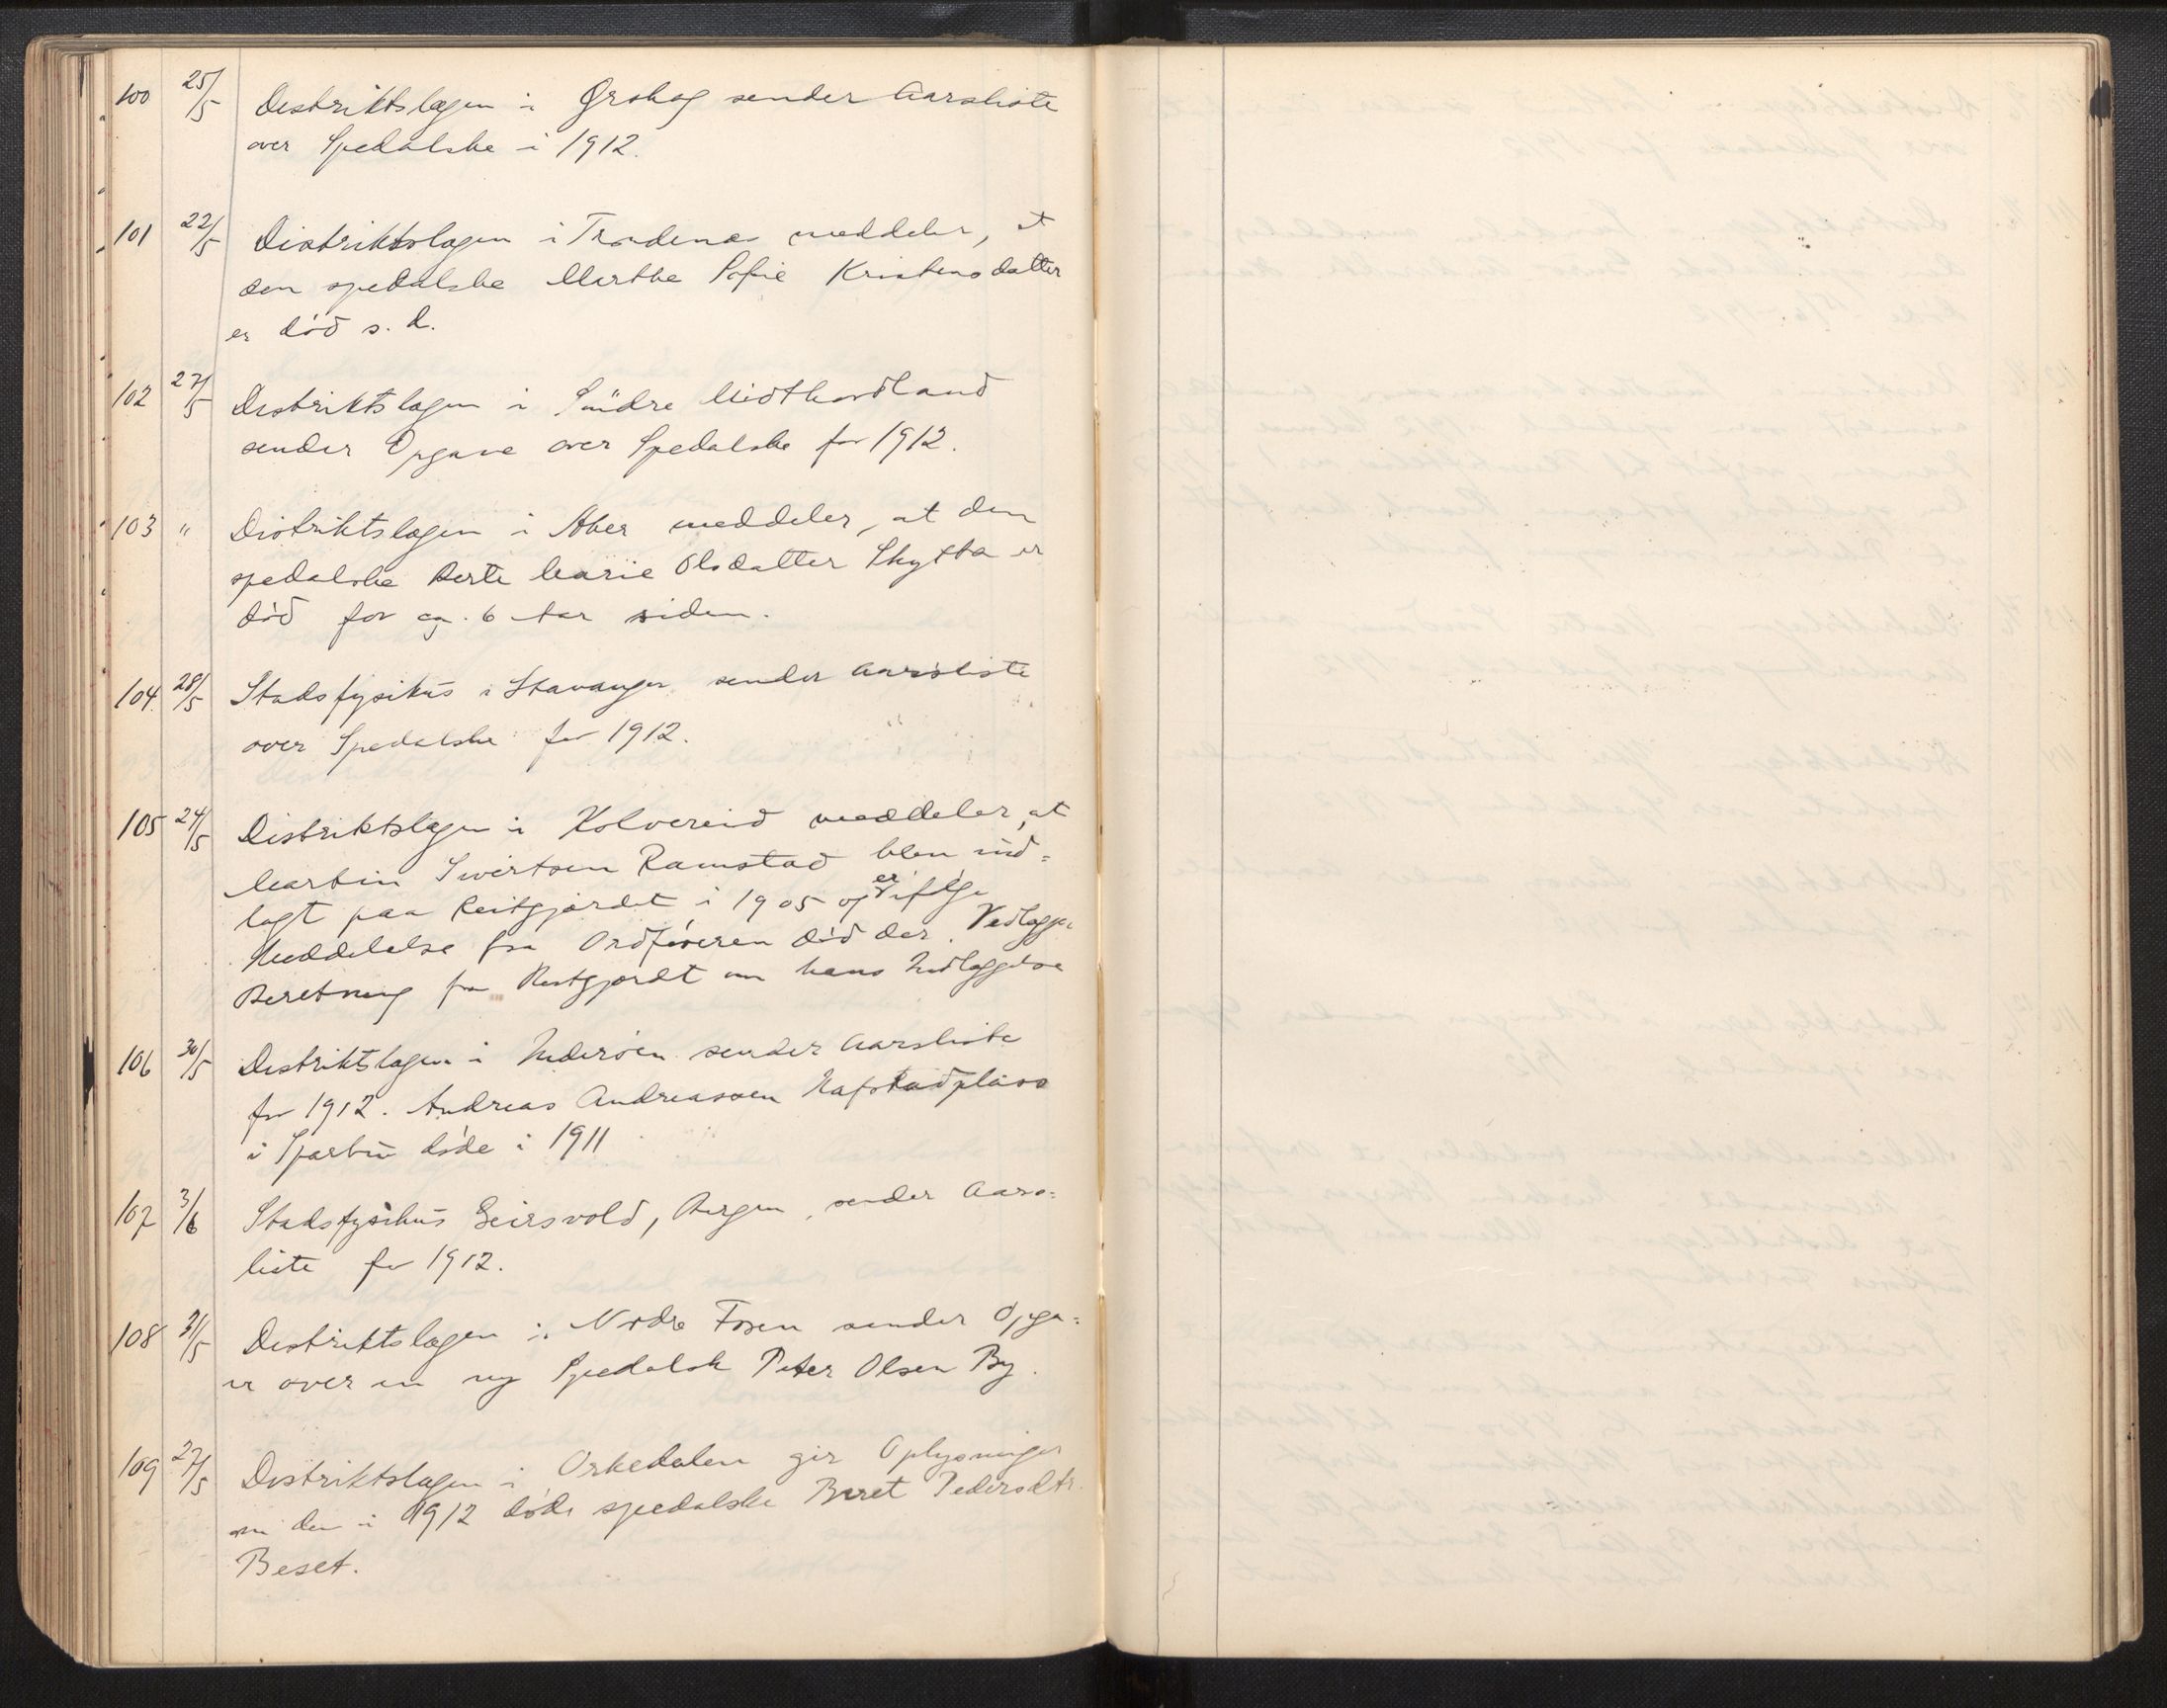 100 25/5 Distriktslægen i Ørskog sender Aarsliste
over Spedalske i 1912.
101 22/5 Distriktslægen i Trondenes meddeler, at
den spedalske Marthe Sofie Kristensdatter
er död s. d.
102 27/5 Distriktslægen i Söndre Midthordland
sender Opgave over Spedalske for 1912.
103 " Distriktslægen i Aker meddeler, at den
spedalske Berte Marie Olsdatter Skytta er
död for ca. 6 Aar siden.
104 28/5 Stadsfysikus i Stavanger sender Aarsliste
over Spedalske for 1912.
105 24/5 Distriktslægen i Kolvereid meddeler, at
Martin Sivertsen Ramstad blev ind=
lagt paa Reitgjærdet i 1905 og er ifölge
Meddelelse fra Ordföreren död der. Vedlægger
Beretning fra Reitgjærdt om hans Indlæggelse
106 30/5 Distriktslægen i Inderöen sender Aarsliste
for 1912. Andreas Andreassen Hafstadplass
i Sparbu döde i 1911
107 3/6 Stadsfysikus Geirsvold, Bergen, sender Aars=
liste for 1912.
108 31/5 Distriktslægen i Nordre Fosen sender Opga=
ver over en ny Spedalsk Peter Olsen By.
109 27/5 Distriktslægen i Orkedalen gir Oplysninger
om den i 1912 döde spedalske Beret Pedersdtr.
Beset.